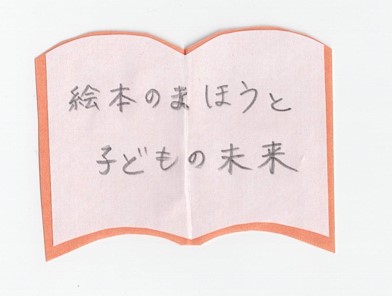 絵本のまほうと
子どもの未来